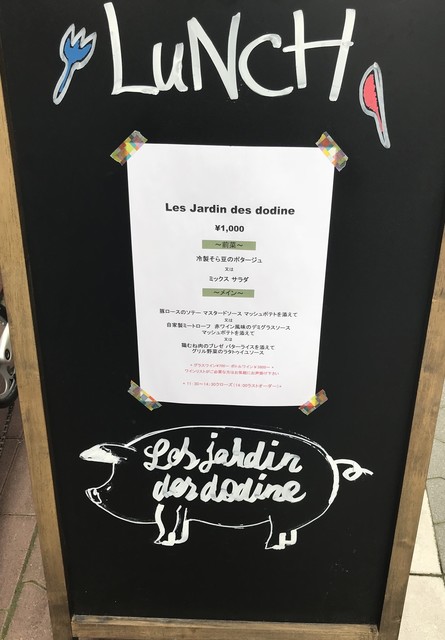 LuNcH
Les Jardin des dodine
¥1,000
～前菜～
冷製そら豆のポタージュ
又は
ミックス サラダ
～メイン～
豚ロースのソテー マスタードソース マッシュポテトを添えて
又は
自家製ミートローフ 赤ワイン風味のデミグラスソース
マッシュポテトを添えて
又は
鶏むね肉のブレゼ バターライスを添えて
グリル野菜のラタトゥイユソース
Les jardin
des dodine